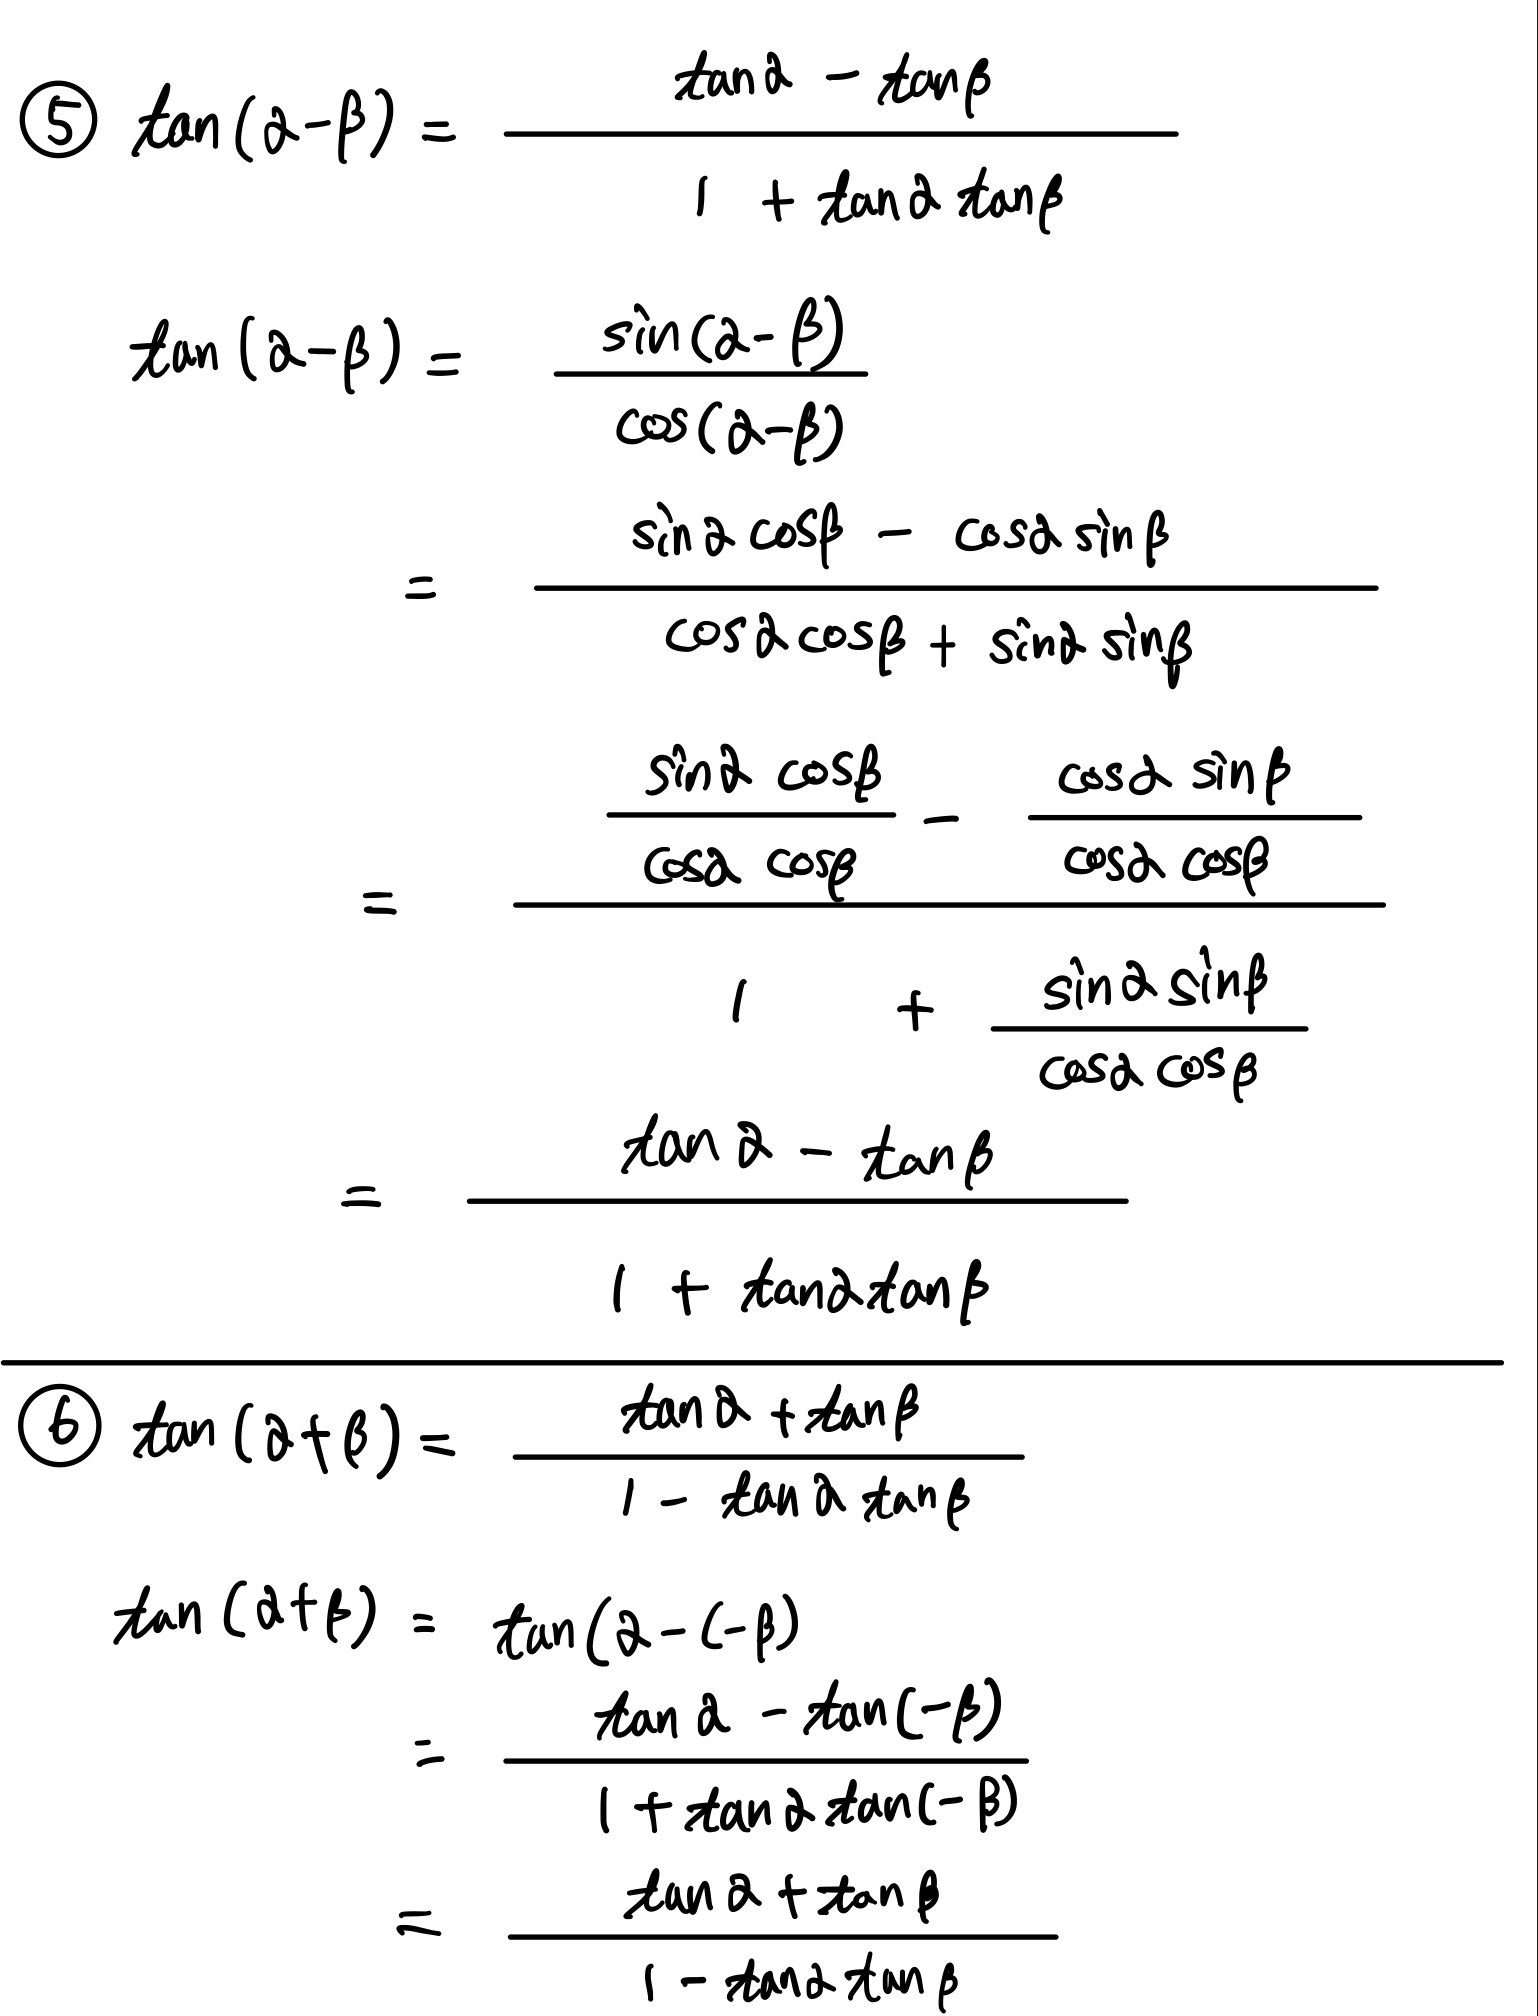 ⑤ tan(α-β) = \frac{tanα - tanβ}{1 + tanα tanβ}
tan(α-β) = \frac{sin(α-β)}{cos(α-β)}
= \frac{sinα cosβ - cosα sinβ}{cosα cosβ + sinα sinβ}
= \frac{\frac{sinα cosβ}{cosα cosβ} - \frac{cosα sinβ}{cosα cosβ}}{1 + \frac{sinα sinβ}{cosα cosβ}}
= \frac{tanα - tanβ}{1 + tanα tanβ}
⑥ tan(α+β) = \frac{tanα + tanβ}{1 - tanα tanβ}
tan(α+β) = tan(α-(-β)
= \frac{tanα - tan(-β)}{1 + tanα tan(-β)}
= \frac{tanα + tanβ}{1 - tanα tanβ}